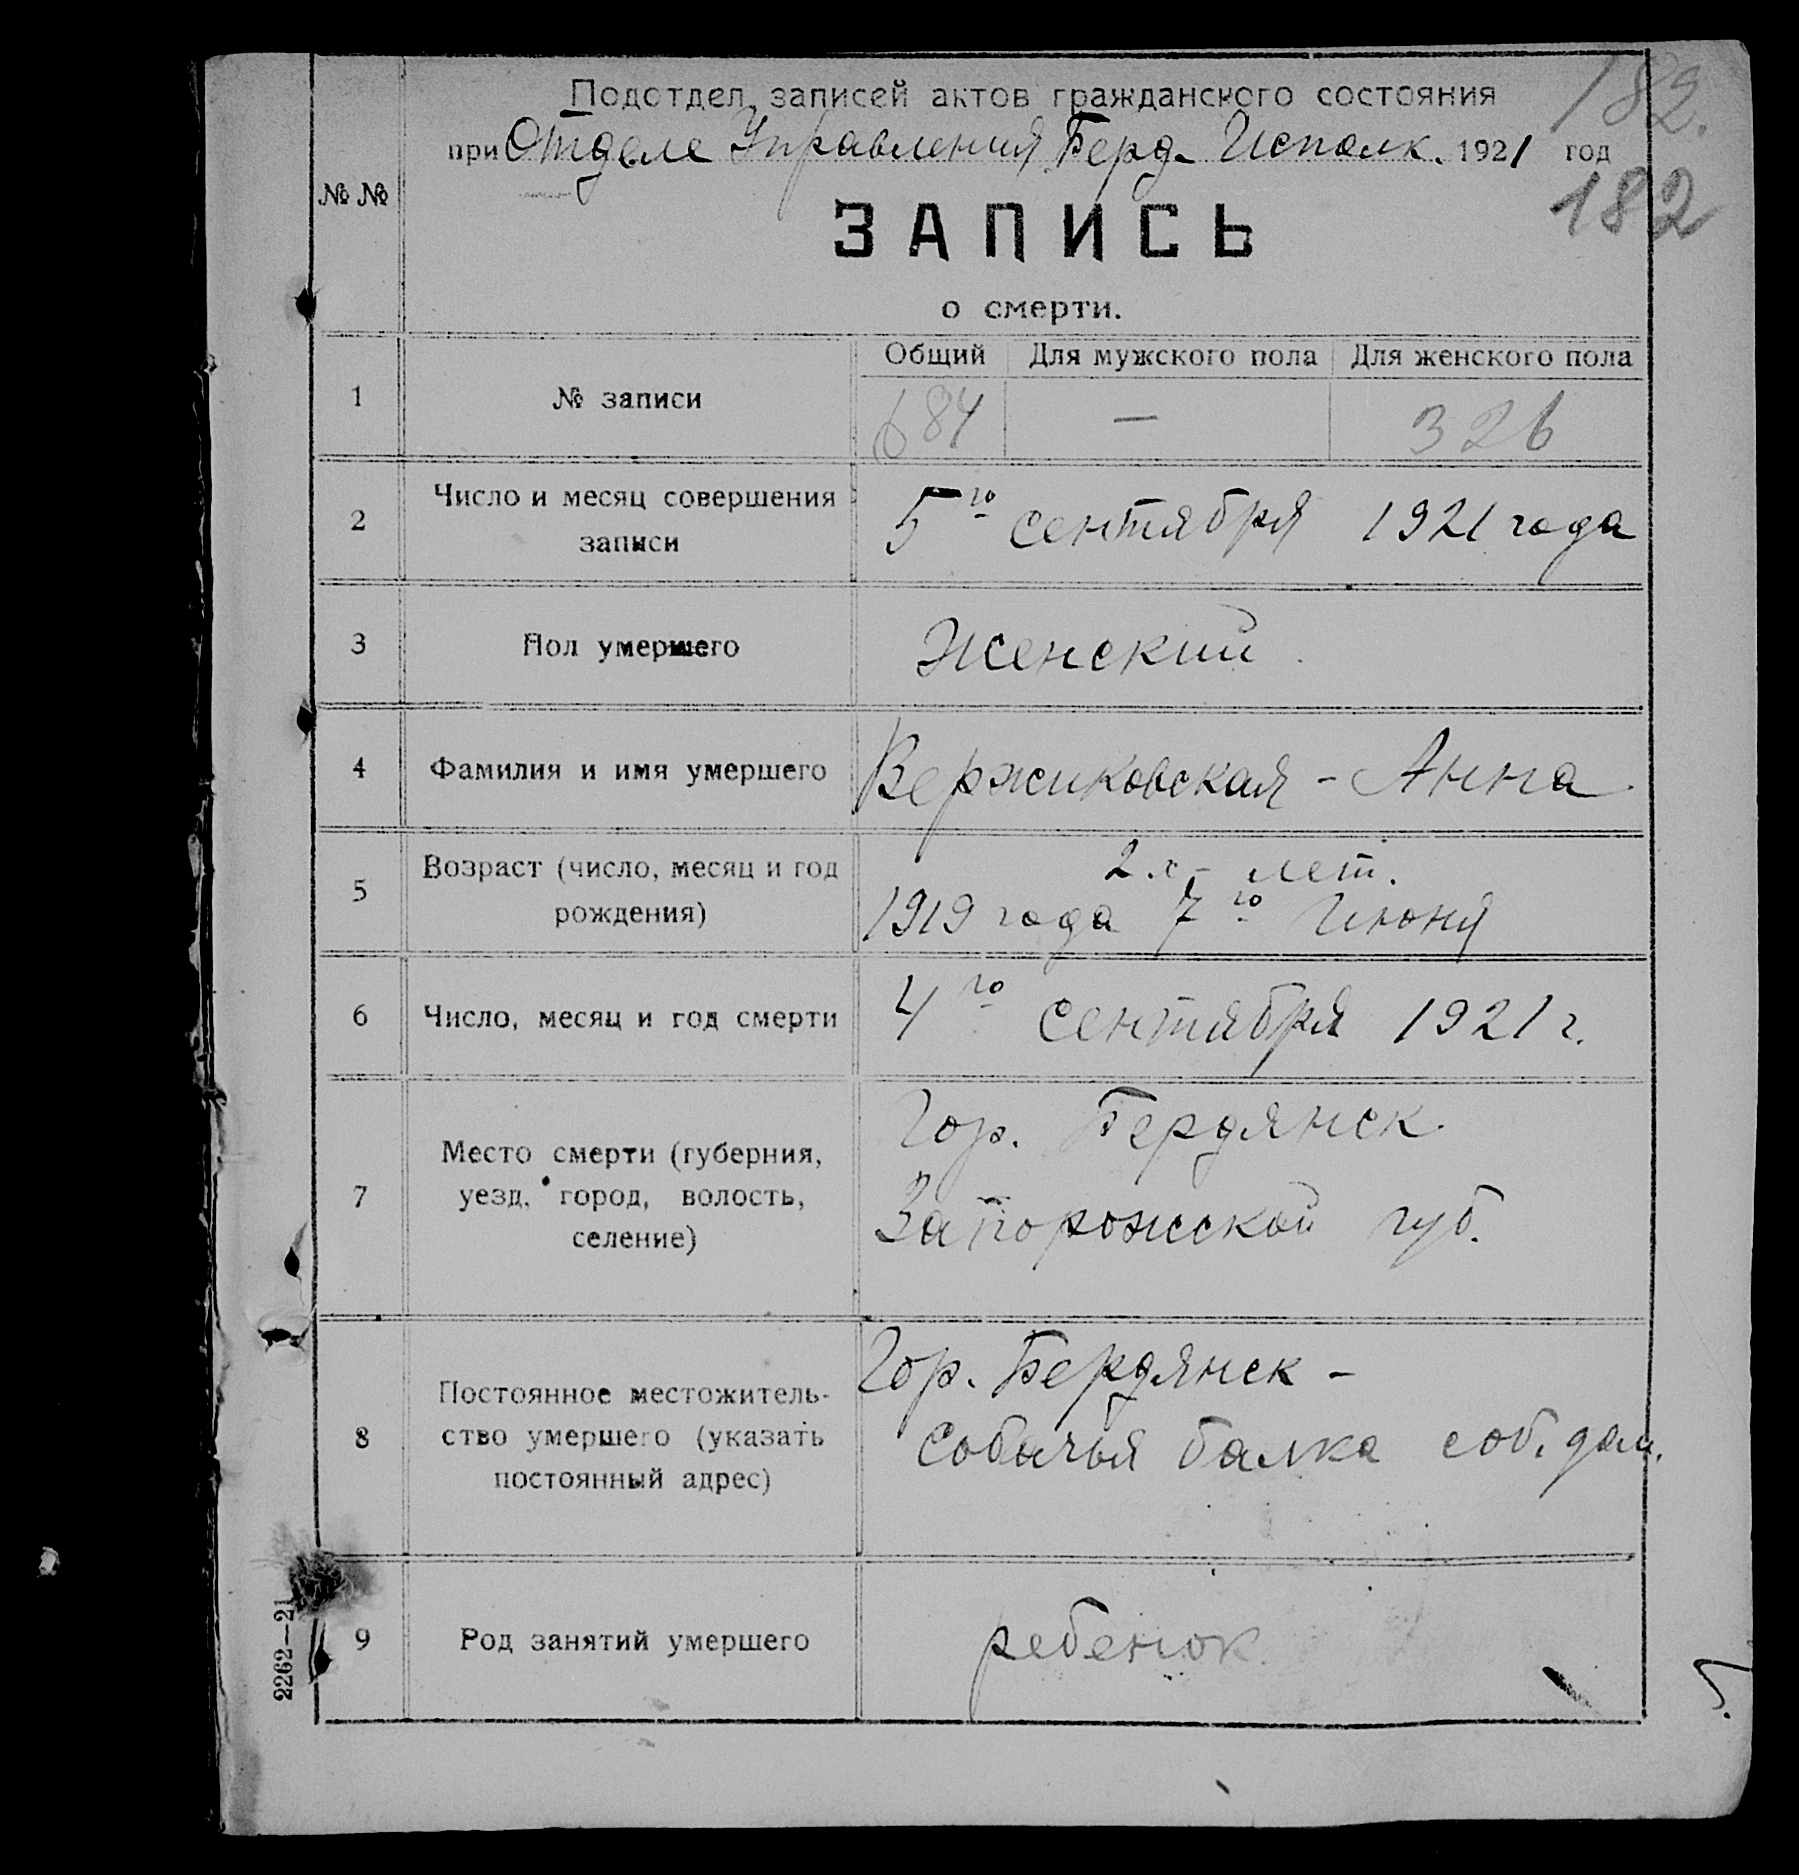 Подотдел записей актов гражданского состояния
182.
при Отделе Управления Берд. Исполк. 1921 год
182
№ №
ЗАПИСЬ
о смерти.
1 № записи
Общий Для мужского пола Для женского пола
684 — 326
2 Число и месяц совершения
записи
5го сентября 1921 года
3 Пол умершего Женский
4 Фамилия и имя умершего Вержиковская - Анна
5 Возраст (число, месяц и год
рождения)
2.х- лет.
1919 года 7го Июня
6 Число, месяц и год смерти 4го сентября 1921 г.
7 Место смерти (губерния,
уезд, город, волость,
селение)
Гор. Бердянск.
Запорожской губ.
8 Постоянное местожитель-
ство умершего (указать
постоянный адрес)
Гор. Бердянск -
Собачья балка соб. дом.
9 Род занятий умершего ребенок
2262—21